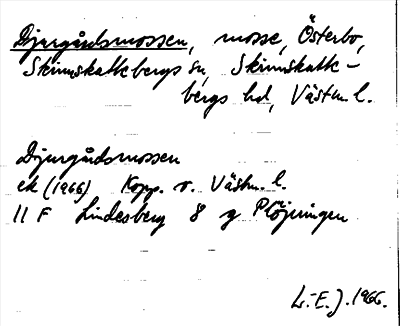 Djurgårdsmossen, mosse, Österbo,
Skinnskattebergs sn, Skinnskatte-
bergs hd, Västm. l.
Djurgårdsmossen
ek (1966) Kopp. o. Västm. l.
11 F Lindesberg 8 g Plöjningen
L.-E. J. 1966.